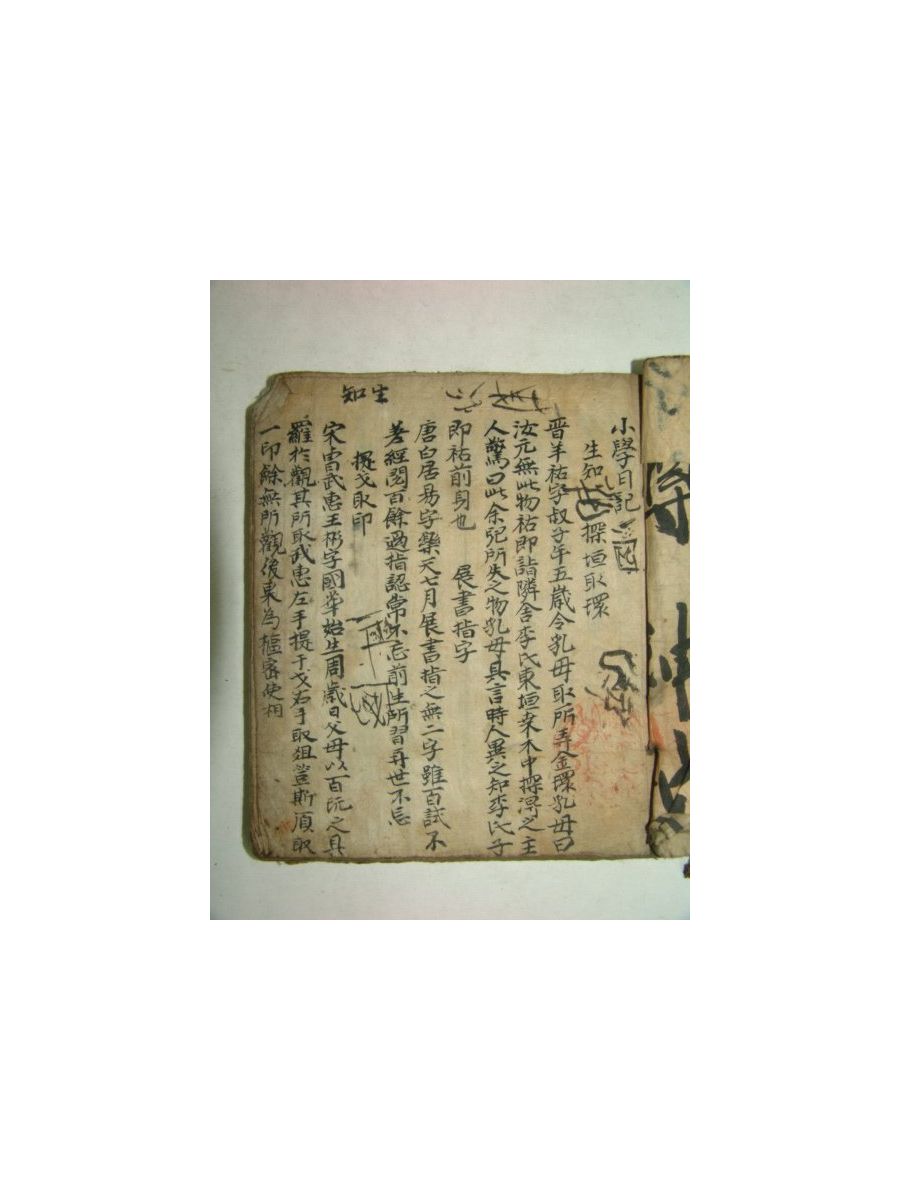 小學日記
生知 探垣取環
晋羊祜字叔子年五歲令乳母取所弄金環乳母曰
汝元無此物祜即詣隣舎李氏東垣桒木中探淂之主
人驚曰此余兒所失之物乳母具言時人異之知李氏子
即祜前身也 展書指字
唐白居易字樂天七月展書指之無二字雖百試不
差經閱百餘過指認常不忘前生所習再世不忘
提戈取印
宋曹武惠王彬字國華始生周歲日父母以百玩之具
羅於觀其所取武惠左手提干戈右手取俎豆斯湏取
一印餘無所觀後果為樞密使相
生知